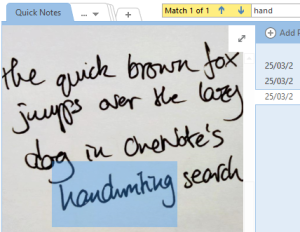 Quick Notes
...
Match 1 of 1
hand
Add P
25/03/2
25/03/2
25/03/2
the quick brown fox
jumps over the lazy
dog in OneNote's
handwriting search